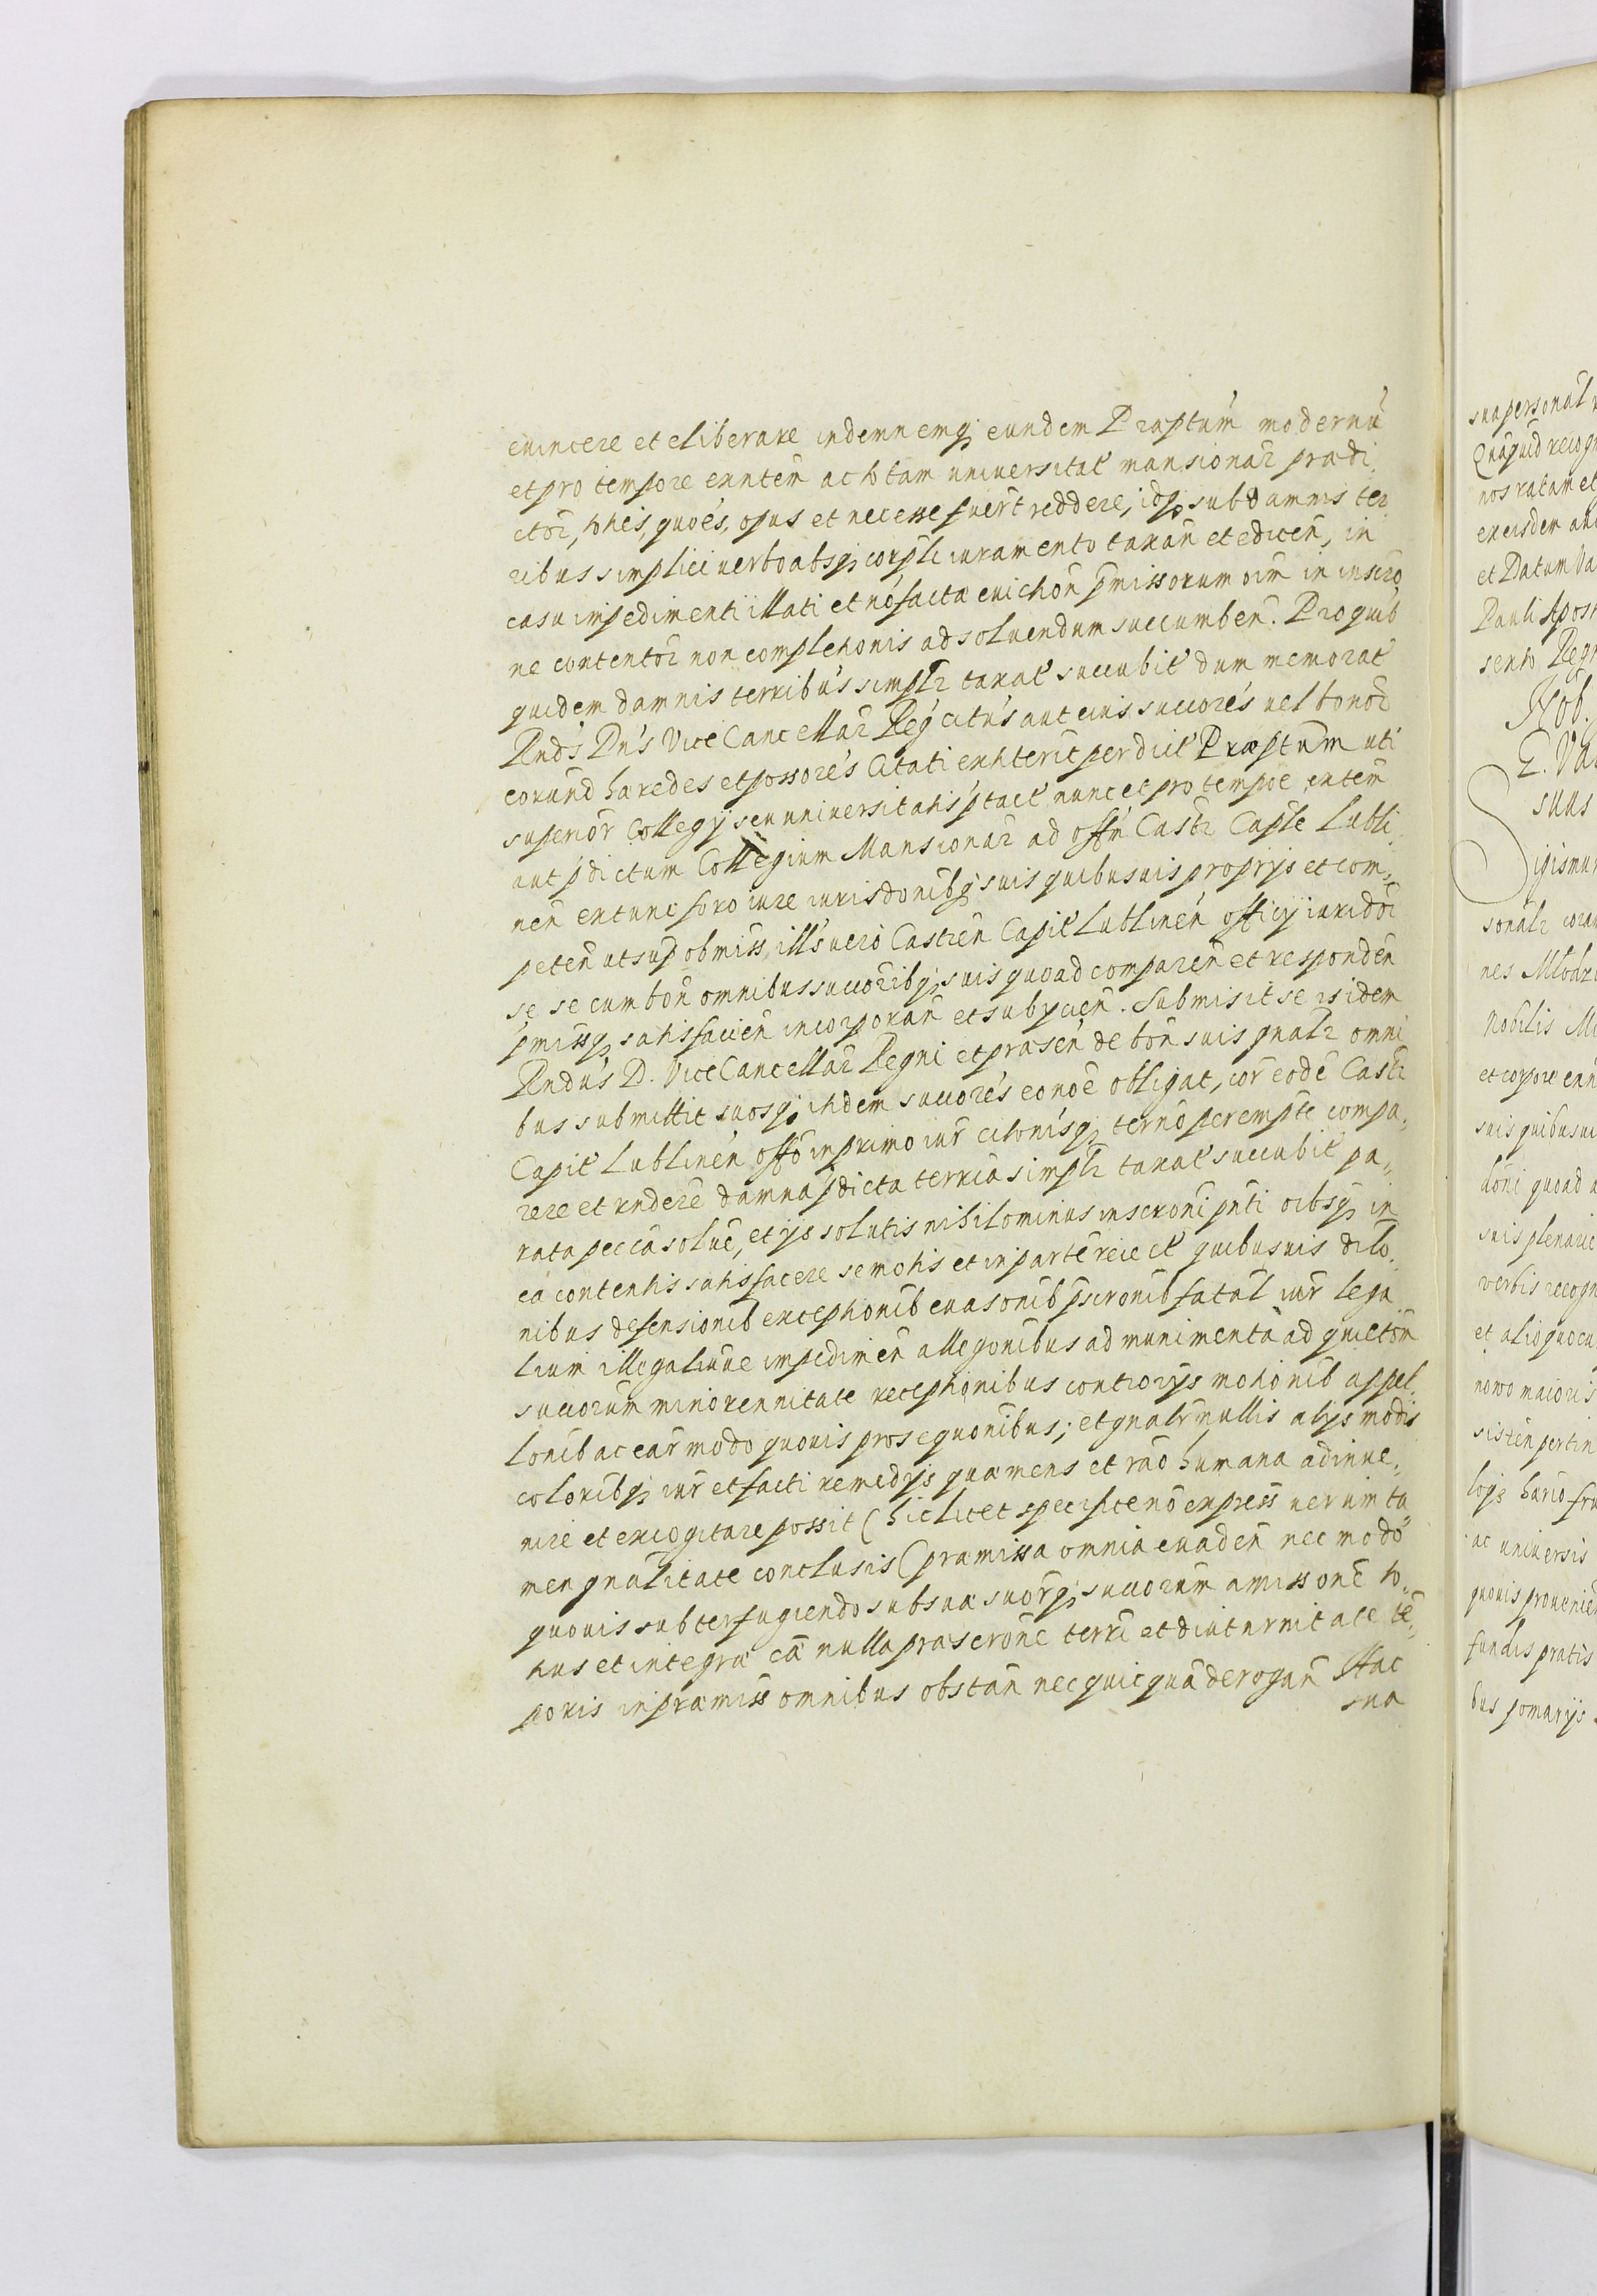 euincere et eliberare indemnemq; eundem Præptum modernũ
et pro tempore exntem ac totam uniuersitat mansionar prædi,
ctor, toties, quoẽs, opus et necesse fuerit reddere, idq; sub damnis ter
ribus simplici uerbo absq; corpli iuramento taxañ et edicen, in
casu impedimenti illati et nõ factæ euictioñ pmissorum oim in inscrõ
ne contentor non completionis ad soluendum succumben. Pro quib
quidem damnis terribus simplr taxat succubit dum memorat
Rnds Dns ViceCancellar Reg citus aut eius succores uel bonor
eorund hæredes et possores citati extiterit per dict Præptum uti
superior Collegij seu uniuersitatis ptact nunc et pro tempoe extem
aut pdictum Collegium Mansionar ad offm Castr Caple Lubli,
nen extunc foro iure iurisdonibq; suis quibusuis proprijs et com,,
peten ut sup obmiss, ills uero Castren Capit Lublinen officij iuriddi
se se cum bon omnibus succoribq; suis quoad comparen et responden
pmissq; satisfacien incorporan et subycien. Submisit se isidem
Rndus D. ViceCancellar Regni et præsen de bon suis gnalr omni
bus submittit suosq; itidem succores eo noe obligat, cor eodẽ Castr
Capit Lublinen offo in primo iur citonisq; termo perempte compa,
rere et rndere damna pdicta terria simplr taxat succubit pa,,
rata peccã solue, et ijs solutis nihilominus inscroni pnti oibsq; in
ea contentis satisfacere semotis et in parte reiect quibusuis dilo,
nibus defensionib exceptionib euasonib pscronib fatal iur lega
lium illegaliuue impedimen allegonibus ad munimenta ad quieton
succorum minorennitate receptionibus controrijs motionib appel,
lonib ac ear modo quouis prosequonibus; et gnalr nullis alijs modis
coloribq; iur et facti remedijs quæ mens et rao humana adinue,,
nire et excogitare possit (hic licet specifice no express uerum ta
men gnalitate conclusis (præmissa omnia euaden nec modo
quouis subterfugiendo sub suæ suorq; succorum amissone to,
tius et integræ cã nulla præscrone terri et diuturnitate tẽ,,
poris in præmiss omnibus obstan nec quicquã derogan Hac
sua
sua personal
Quaquid recog
nos ratam et
ex eisdem
et Datum Va
Pauli Apost
sento Regn
Nob.
E. Va
suus
Sigismun
sonalr coram
nes Młodz
Nobilis
et corpore
suis quibusui
doni quoad
suis plenarie
verbis recogn
et alio quocu
nowo maioris
sisten pertin
ac uniuersis
quouis prouenien
fundis pratis
bus pomarijs